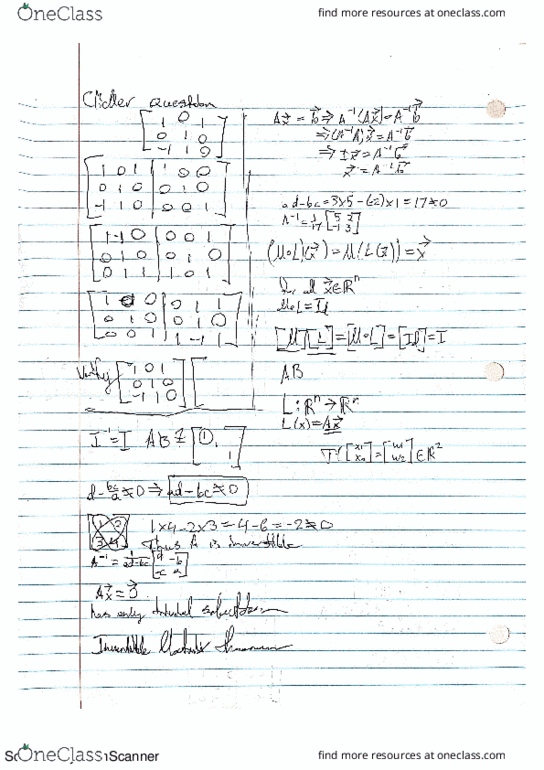 OneClass
find more resources at oneclass.com
Clicker question
[1 0 1
0 1 0
-1 1 0]
[1 0 1 | 1 0 0
0 1 0 | 0 1 0
-1 1 0 | 0 0 1]
[1 -1 0 | 0 0 1
0 1 0 | 0 1 0
0 1 1 | 1 0 1]
[1 0 0 | 0 1 1
0 1 0 | 0 1 0
0 0 1 | 1 -1 1]
Verify [1 0 1
0 1 0
-1 1 0] [
I⁻¹ = I AB
d - bc/a ≠ 0 ⇒ ad - bc ≠ 0
[1 2
3 4] 1x4 - 2x3 = 4 - 6 = -2 ≠ 0
Thus A is invertible
A⁻¹ = 1/ad-bc [d -b
-c a]
Ax⃗ = 0⃗
has only trivial solution
Invertible Matrix theorem
Ax⃗ = b⃗ ⇒ A⁻¹(Ax⃗) = A⁻¹b⃗
⇒ (A⁻¹A)x⃗ = A⁻¹b⃗
⇒ Ix⃗ = A⁻¹b⃗
x⃗ = A⁻¹b⃗
ad-bc = 3x5 - (-2)x1 = 17 ≠ 0
A⁻¹ = 1/17 [5 2
-1 3]
(M∘L)(x⃗) = M(L(x⃗)) = x⃗
for all x⃗ ∈ ℝⁿ
M∘L = Id
[M][L] = [M∘L] = [Id] = I
AB
L: ℝⁿ → ℝⁿ
L(x) = Ax⃗
T: [x1
x2] = [w1
w2] ∈ ℝ²
OneClass
Scanner
find more resources at oneclass.com